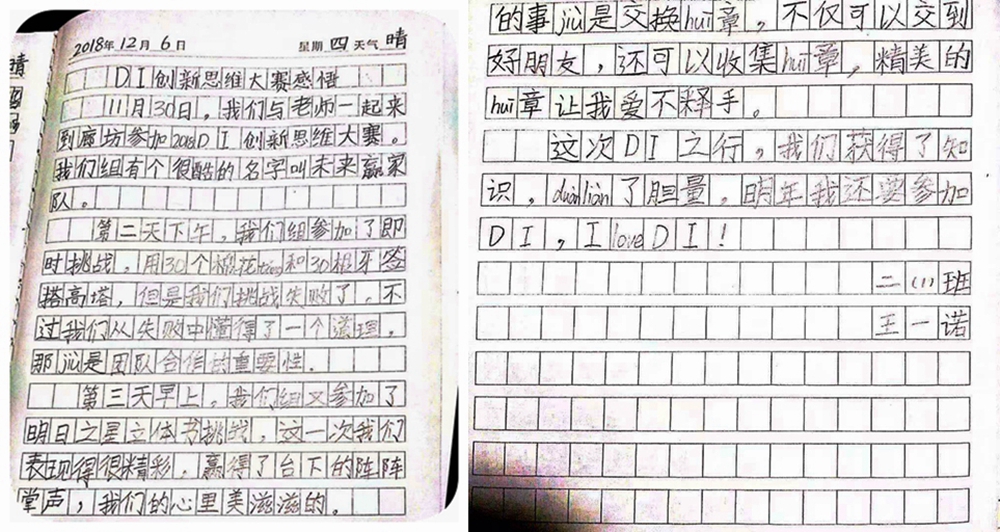 2018年12月6日 星期四天气晴
DI创新思维大赛感悟
11月30日，我们与老师一起来
到廊坊参加2018DI创新思维大赛。
我们组有个很酷的名字叫未来赢家
队。
第二天下午，我们组参加了即
时挑战，用30个棉花táng和30根牙签
搭高塔，但是我们挑战失败了，不
过我们从失败中懂得了一个道理，
那jiù是团队合作的重要性。
第三天早上，我们组又参加了
明日之星立体书挑战，这一次我们
表现得很精彩，赢得了台下的阵阵
掌声，我们的心里美滋滋的。
的事jiù是交换huī章，不仅可以交到
好朋友，还可以收集huī章，精美的
huī章让我爱不释手。
这次DI之行，我们获得了知
识，duànliàn了胆量，明年我还要参加
DI，I love DI！
二(1)班
王一诺